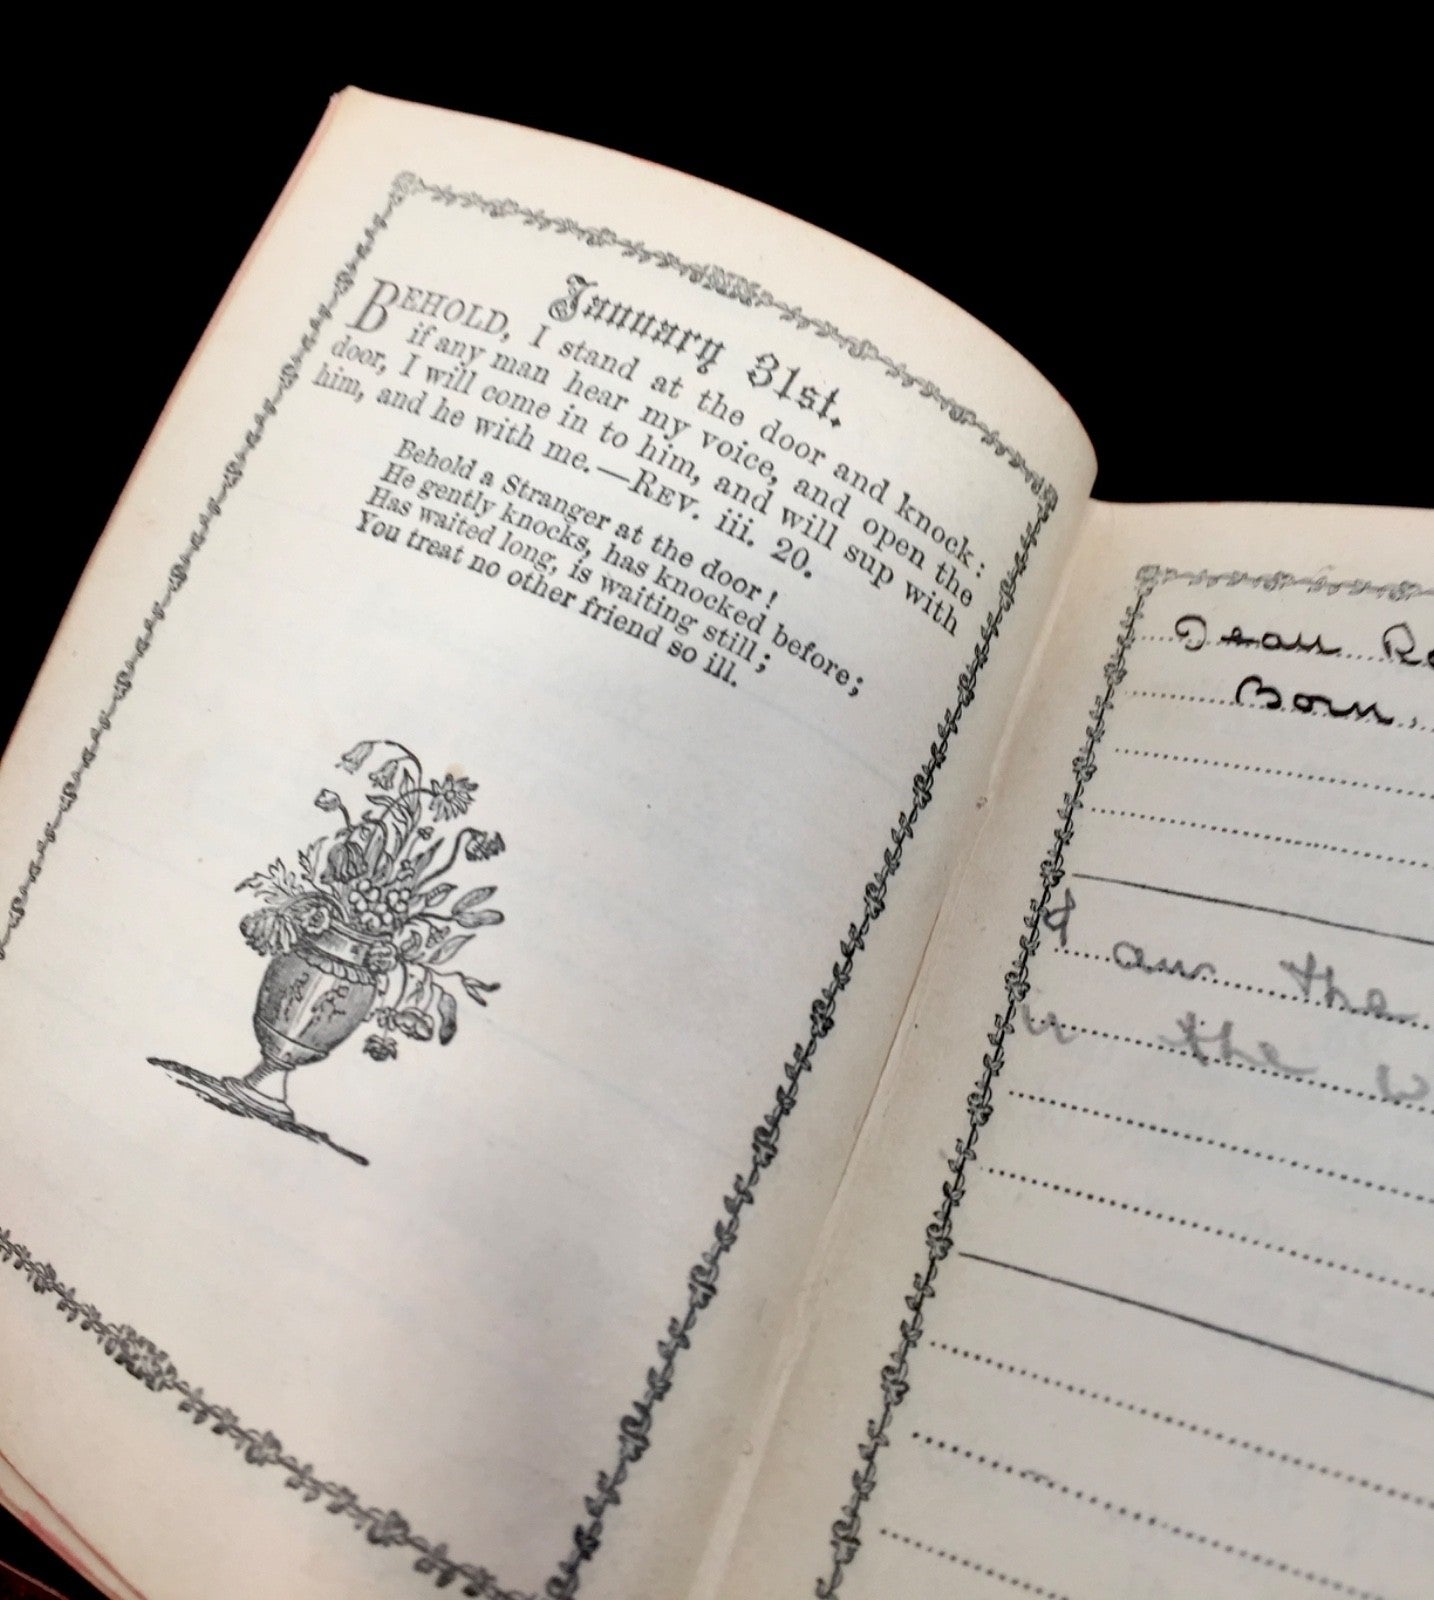 January 31st.
BEHOLD, I stand at the door and knock:
if any man hear my voice, and open the
door, I will come in to him, and will sup with
him, and he with me.—REV. iii. 20.
Behold a Stranger at the door!
He gently knocks, has knocked before;
Has waited long, is waiting still;
You treat no other friend so ill.
Jean
Born.
am the
the